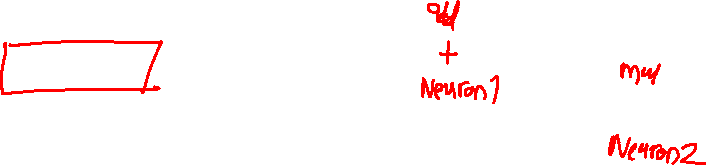 add
+
Neuron1
mul
Neuron2